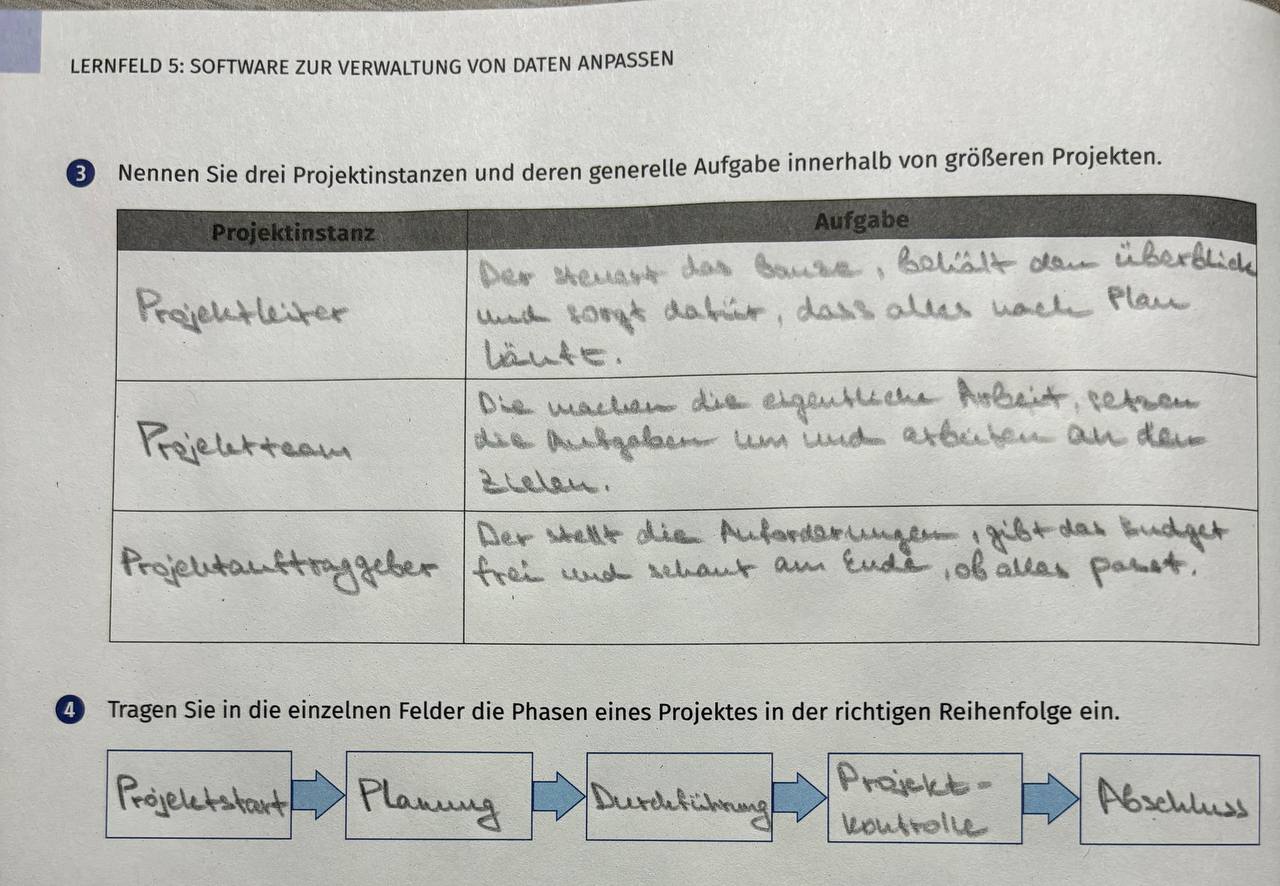 LERNFELD 5: SOFTWARE ZUR VERWALTUNG VON DATEN ANPASSEN
3 Nennen Sie drei Projektinstanzen und deren generelle Aufgabe innerhalb von größeren Projekten.
Projektinstanz
Aufgabe
Projektleiter
Der steuert das Ganze, behält den überblick
und sorgt dafür, dass alles nach Plan
läuft.
Projektteam
Die machen die eigentliche Arbeit, setzen
die Aufgaben um und arbeiten an den
Zielen.
Projektauftraggeber
Der stellt die Anforderungen, gibt das Budget
frei und schaut am Ende, ob alles passt.
4 Tragen Sie in die einzelnen Felder die Phasen eines Projektes in der richtigen Reihenfolge ein.
Projektstart
Planung
Durchführung
Projekt-
kontrolle
Abschluss